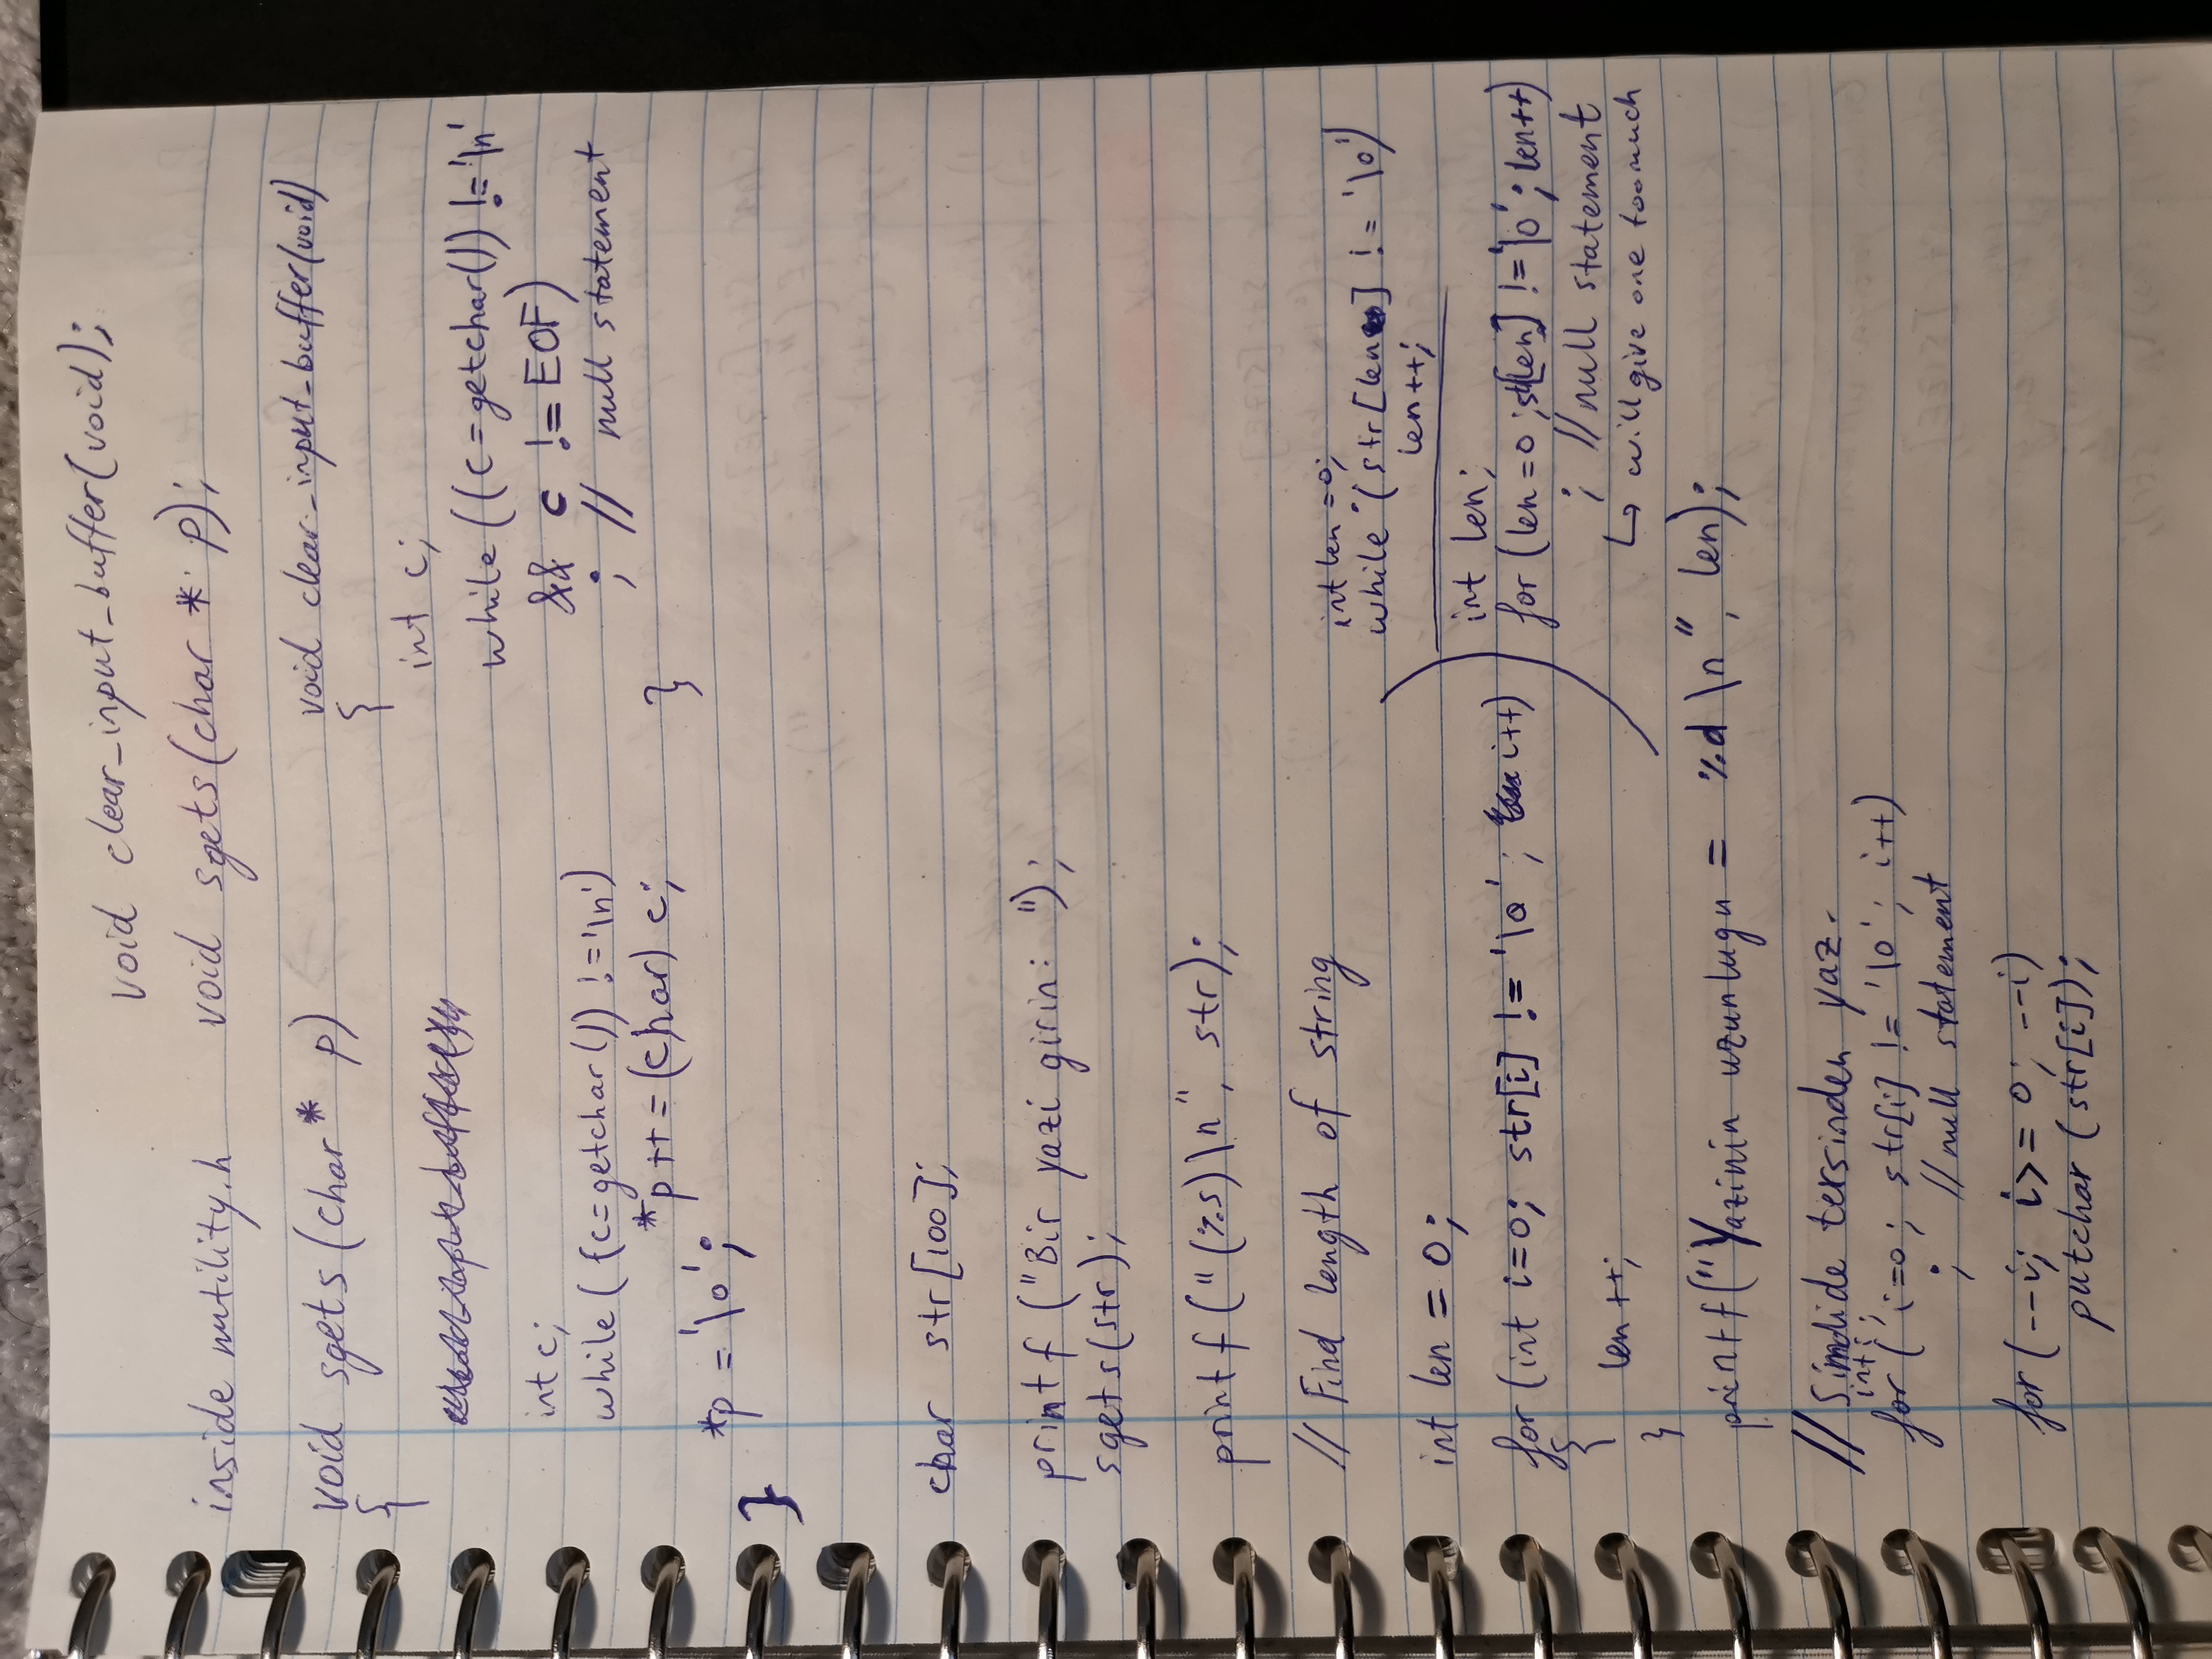 void clear_input_buffer(void);
inside nutility.h void sgets(char * p);
void sgets(char* p)
{
int c;
while ((c=getchar()) !='\n')
*p++=(char) c;
*p = '\0';
}
void clear_input_buffer(void)
{
int c;
while ((c=getchar()) !='\n'
&& c != EOF)
; // null statement
}
char str[100];
printf ("Bir yazi girin: ");
sgets(str);
printf ("(%s)\n", str);
// Find length of string
int len = 0;
for (int i=0; str[i] != '\0'; i++)
{
len++;
}
int len =0;
while (str[len] != '\0')
len++;
int len;
for (len=0; str[len] !='\0'; len++)
; //null statement
↳ will give one too much
printf("Yazinin uzunlugu = %d \n", len);
// Simdide tersinden yaz.
int i;
for ( i=0; str[i] != '\0'; i++)
; //null statement
for (--i; i>= 0; --i)
putchar (str[i]);